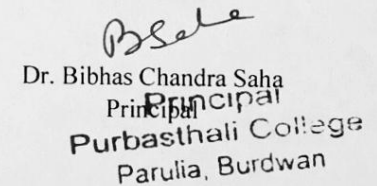 BSaha
Dr. Bibhas Chandra Saha
Principal
Principal
Purbasthali College
Parulia, Burdwan